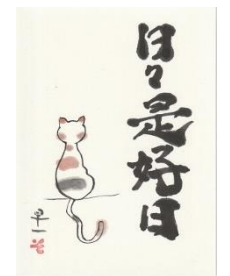 日々是好日
早一